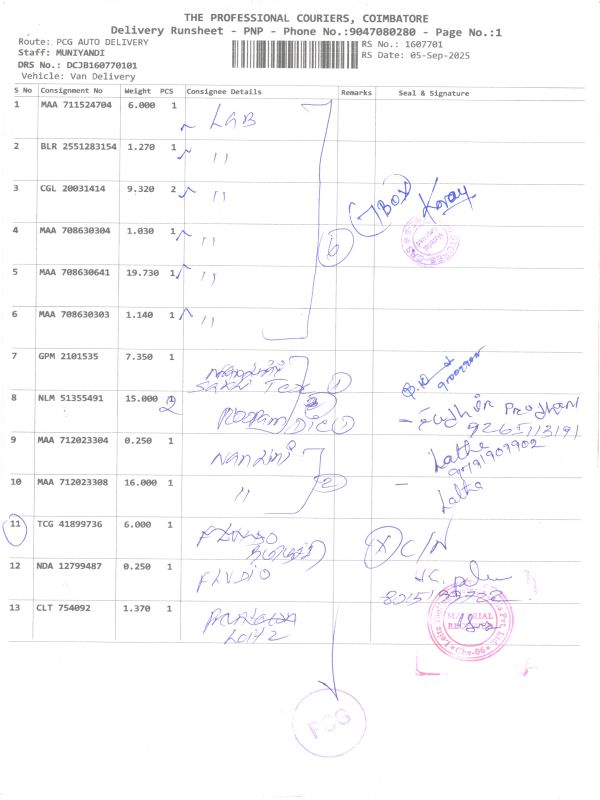 THE PROFESSIONAL COURIERS, COIMBATORE
Delivery Runsheet - PNP - Phone No.:9047080280 - Page No.:1
Route: PCG AUTO DELIVERY
Staff: MUNIYANDI
DRS No.: DCJB160770101
Vehicle: Van Delivery
RS No.: 1607701
RS Date: 05-Sep-2025
S No Consignment No Weight PCS Consignee Details Remarks Seal & Signature
1 MAA 711524704 6.000 1 LGB
2 BLR 2551283154 1.270 1 11
3 CGL 20031414 9.320 2 11 7 BOX
4 MAA 708630304 1.030 1 11 6
5 MAA 708630641 19.730 1 11
6 MAA 708630303 1.140 1 11
7 GPM 2101535 7.350 1
SAKHI TEX 1
8 NLM 51355491 15.000 2
POOPAM DIC 1
9265113191
9 MAA 712023304 0.250 1 Latha
9791909902
10 MAA 712023308 16.000 1 11 2 Latha
11 TCG 41899736 6.000 1 X C/N
12 NDA 12799487 0.250 1 FLUDIO
13 CLT 754092 1.370 1
MATERIAL
Cbe-06
PCG